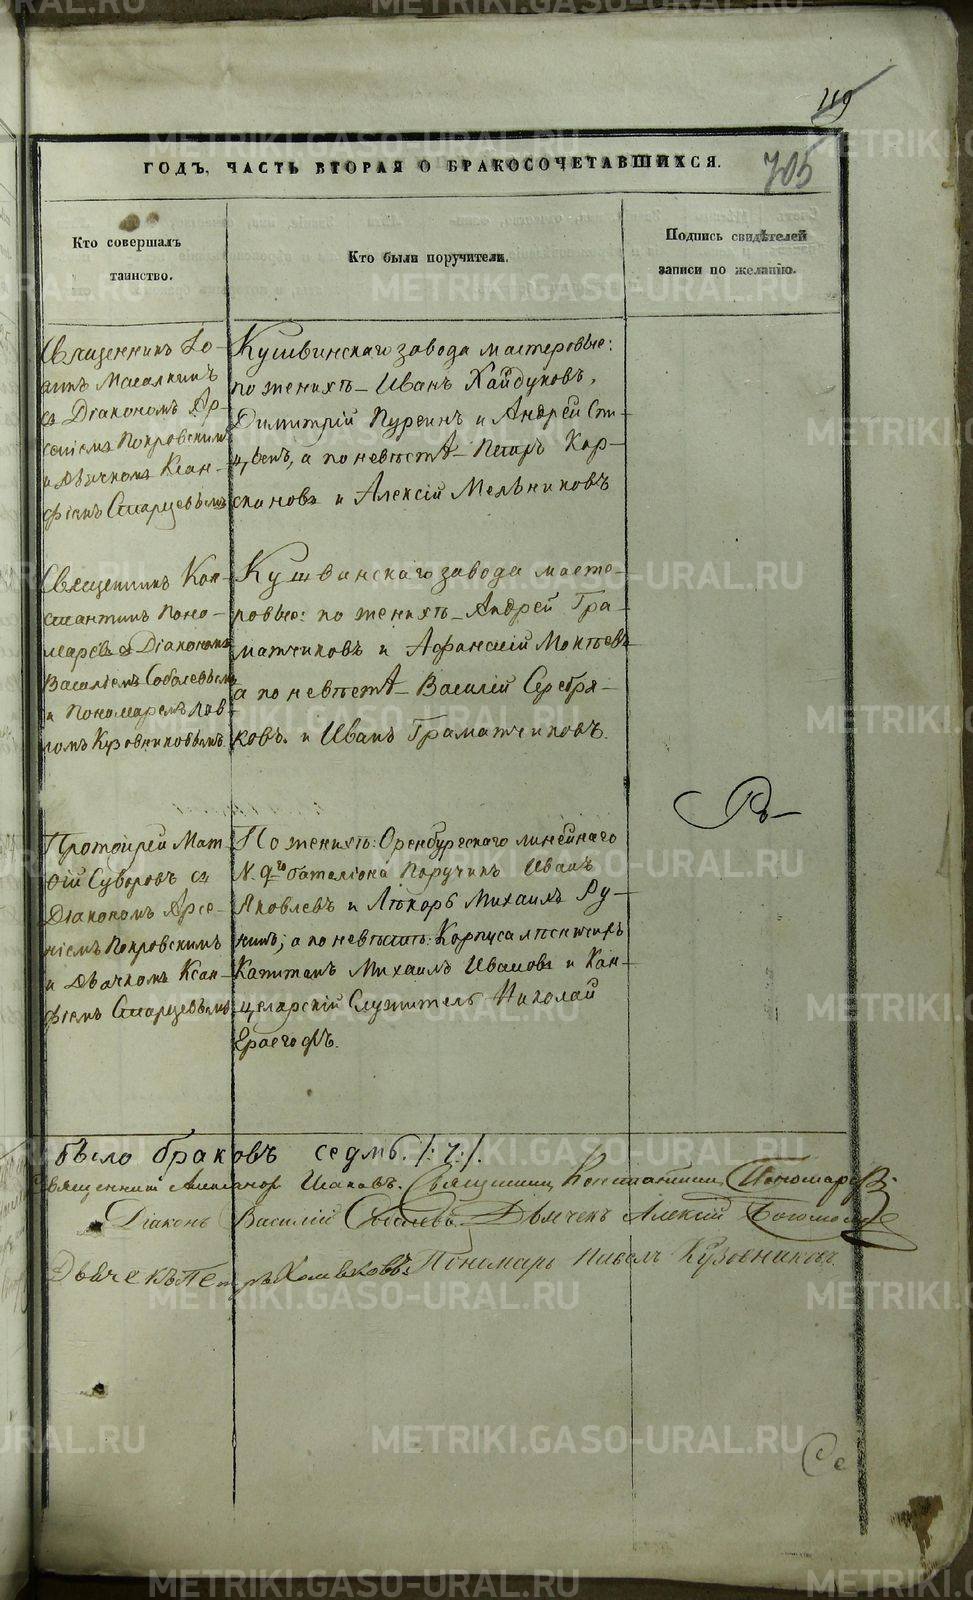 119
705
ГОДЪ, ЧАСТЬ ВТОРАЯ О БРАКОСОЧЕТАВШИХСЯ.
Кто совершалъ
таинство.
Кто были поручители.
Подпись свидѣтелей
записи по желанію.
Священникъ Іо-
аннъ Масалкинъ
съ Діакономъ Ар-
сеніемъ Покровскимъ
и дьячкомъ Ксан-
фіемъ Старцевымъ
Кушвинскаго завода мастеровые:
по женихѣ – Иванъ Хайдуковъ,
Димитрій Пуреинъ и Андрей
а по невѣстѣ – Петръ Кор-
скановъ и Алексій Мельниковъ
Священникъ Кон-
стантинъ Поно-
маревъ съ Діакономъ
Василіемъ Соболевымъ
и Пономаремъ Пав-
ломъ Кузовниковымъ
Кушвинскаго завода масте-
ровые: по женихѣ – Андрей Гра-
матчиковъ и Афанасій Мокѣевъ
а по невѣстѣ – Василій Серебря-
ковъ и Иванъ Граматчиковъ.
Протоіерей Мат-
ѳій Суворовъ съ
Діакономъ Арсе-
ніемъ Покровскимъ
и дьячкомъ Ксан-
фіемъ Старцевымъ
По женихѣ: Оренбургскаго линейнаго
N. 9го баталіона Поручикъ Иванъ
Яковлевъ и Лѣкарь Михаилъ Ру-
а по невѣстѣ: Корпуса лѣсничихъ
Капитанъ Михаилъ Ивановъ и Кан-
целарскій Служитель Николай
было браковъ седмь /:7:/.
Священникъ Александръ Священникъ Константинъ Пономаревъ
Діаконъ Василій Соболевъ. Дьячекъ Алексій
Дьячекъ Петръ Пономарь Павелъ Кузовниковъ.
METRIKI.GASO-URAL.RU